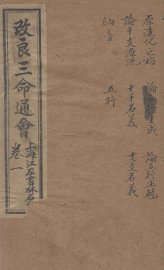 原造化之始 論五行生成 論五行生剋
論干支源流 十干名義 十二支名義
納音 五行
改良三命通會
卷一
上海江左書林石